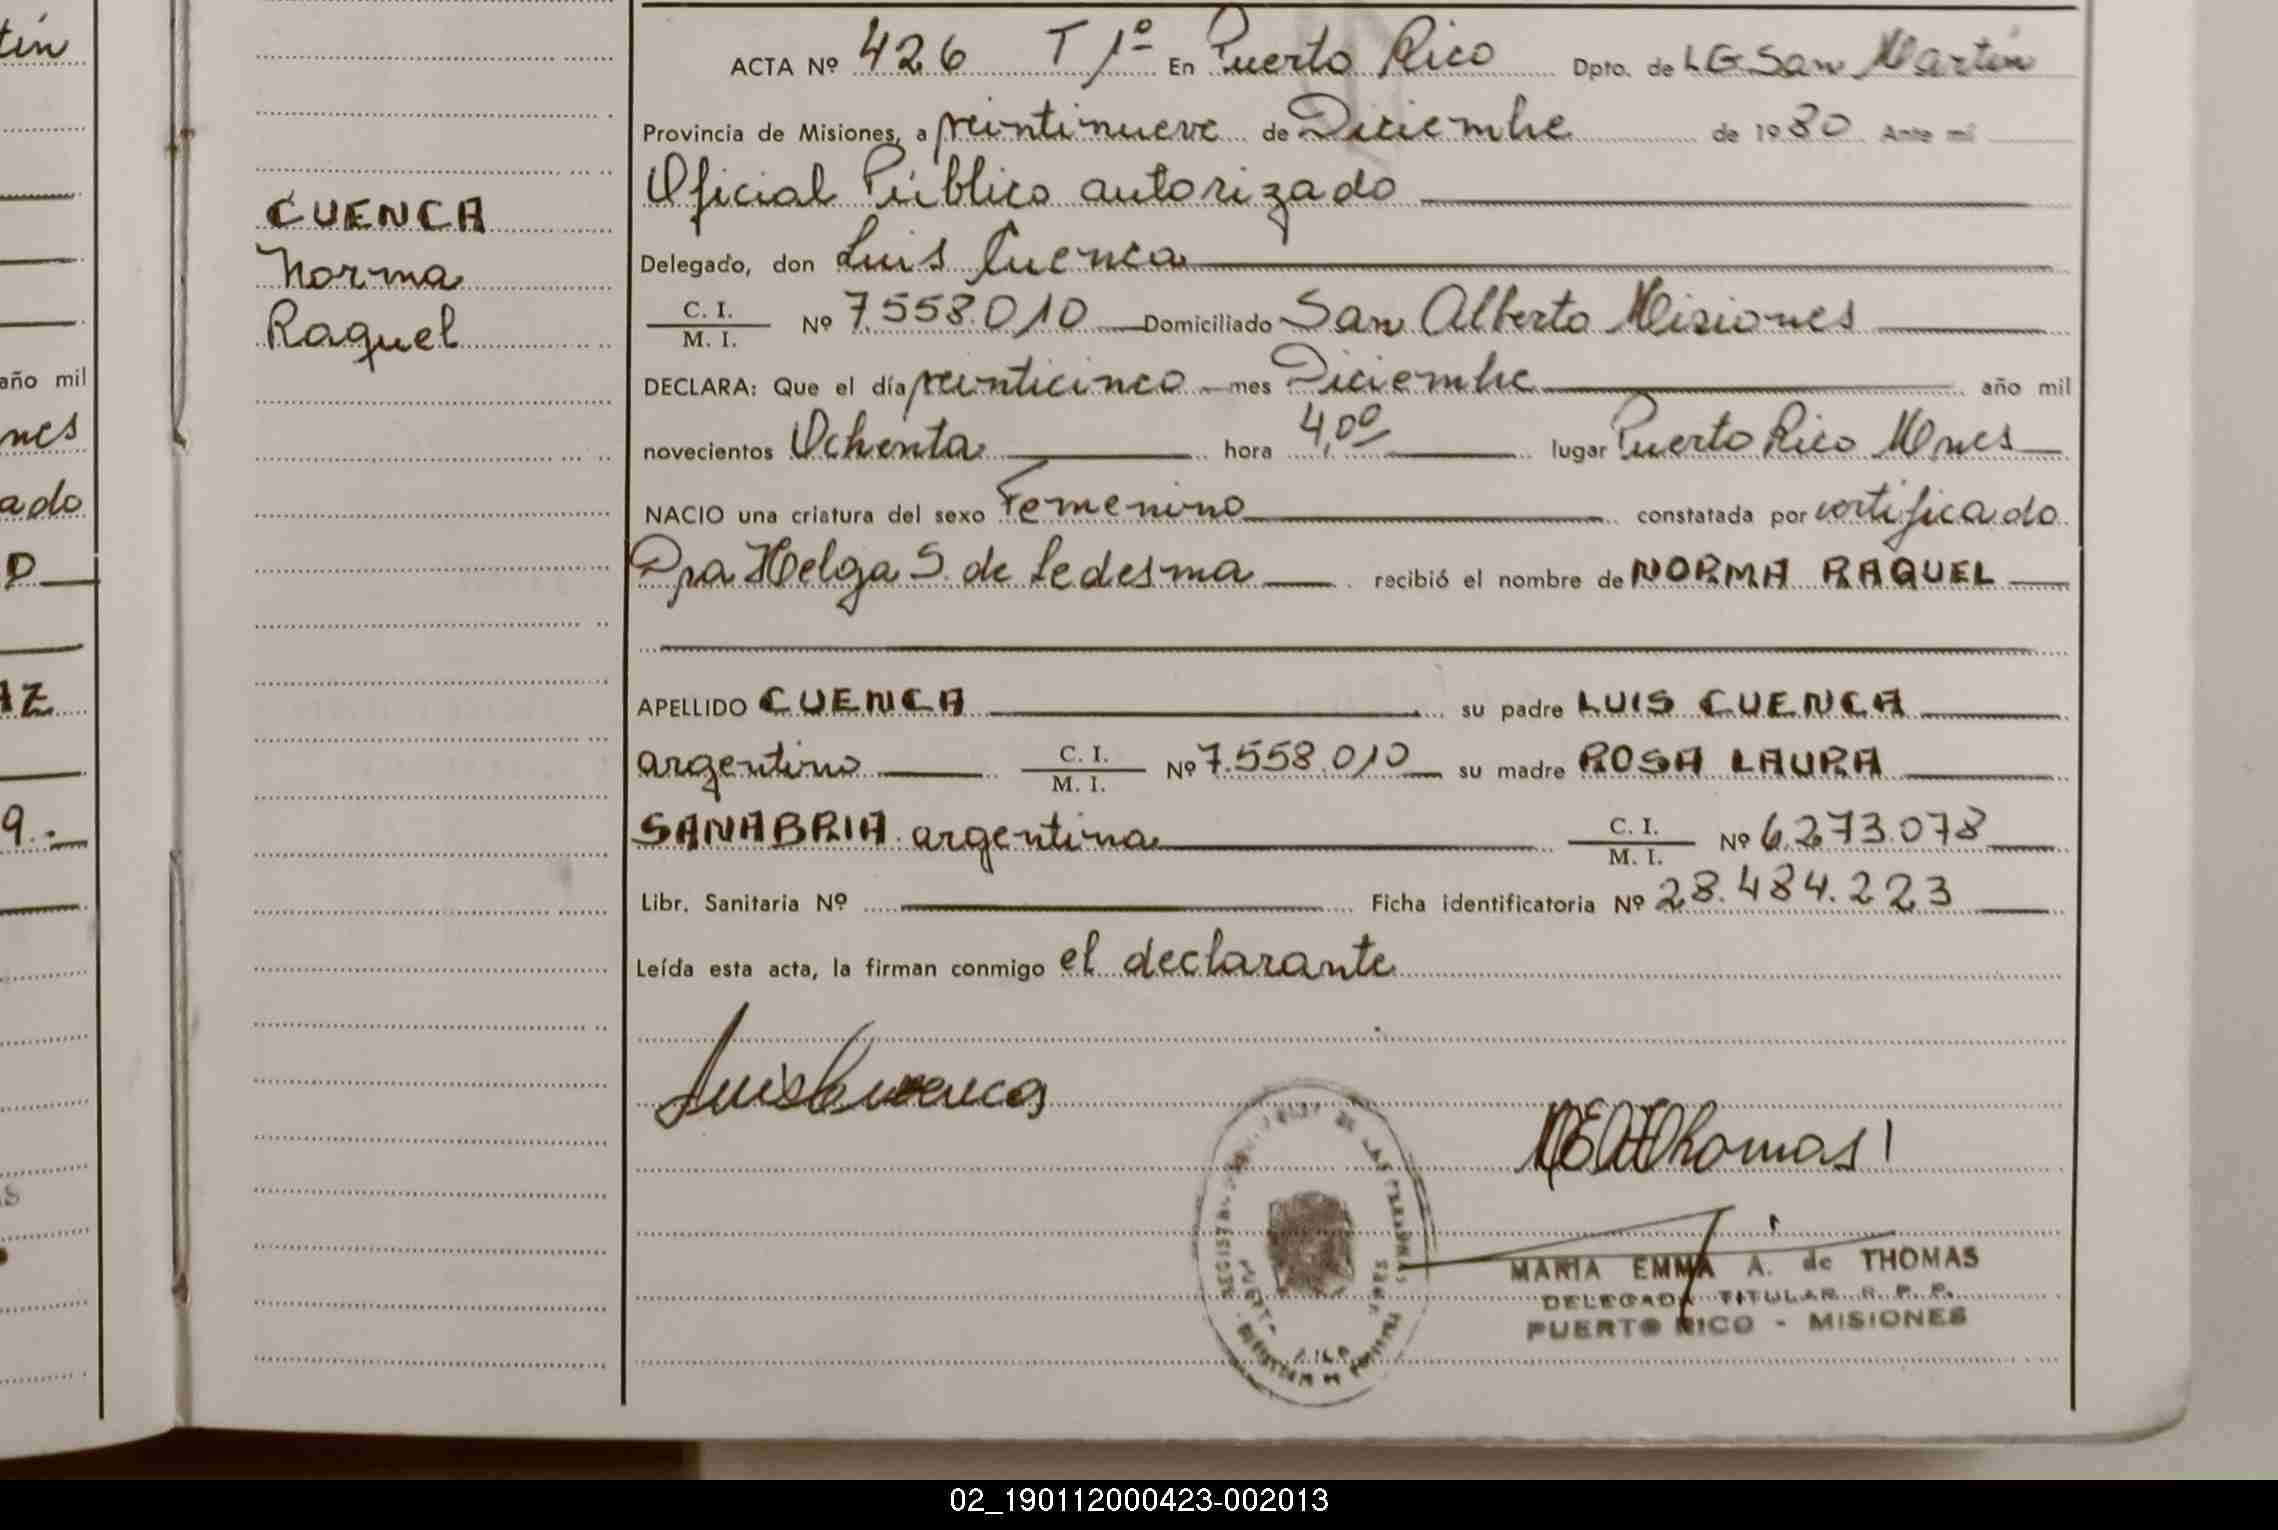 tín
nes
ado
D
AZ
9.-
año mil
CUENCA
Norma
Raquel
ACTA Nº 426 T 1º En Puerto Rico Dpto. de L G San Martín
Provincia de Misiones, a veintinueve de Diciembre de 1980 Ante mí
Oficial Público autorizado
Delegado, don Luis Cuenca
C. I.
M. I. Nº 7.558.010 Domiciliado San Alberto Misiones
DECLARA: Que el día veinticinco mes Diciembre año mil
novecientos Ochenta hora 4,00 lugar Puerto Rico Mnes
NACIO una criatura del sexo Femenino constatada por certificado
Dra Helga S. de Ledesma recibió el nombre de NORMA RAQUEL
APELLIDO CUENCA su padre LUIS CUENCA
argentino C. I.
M. I. Nº 7.558.010 su madre ROSA LAURA
SANABRIA argentina C. I.
M. I. Nº 6.273.078
Libr. Sanitaria Nº Ficha identificatoria Nº 28.484.223
Leída esta acta, la firman conmigo el declarante
Luis Cuenca
Thomas
MARIA EMMA A. de THOMAS
DELEGADA TITULAR R. P. P.
PUERTO RICO - MISIONES
02_190112000423-002013